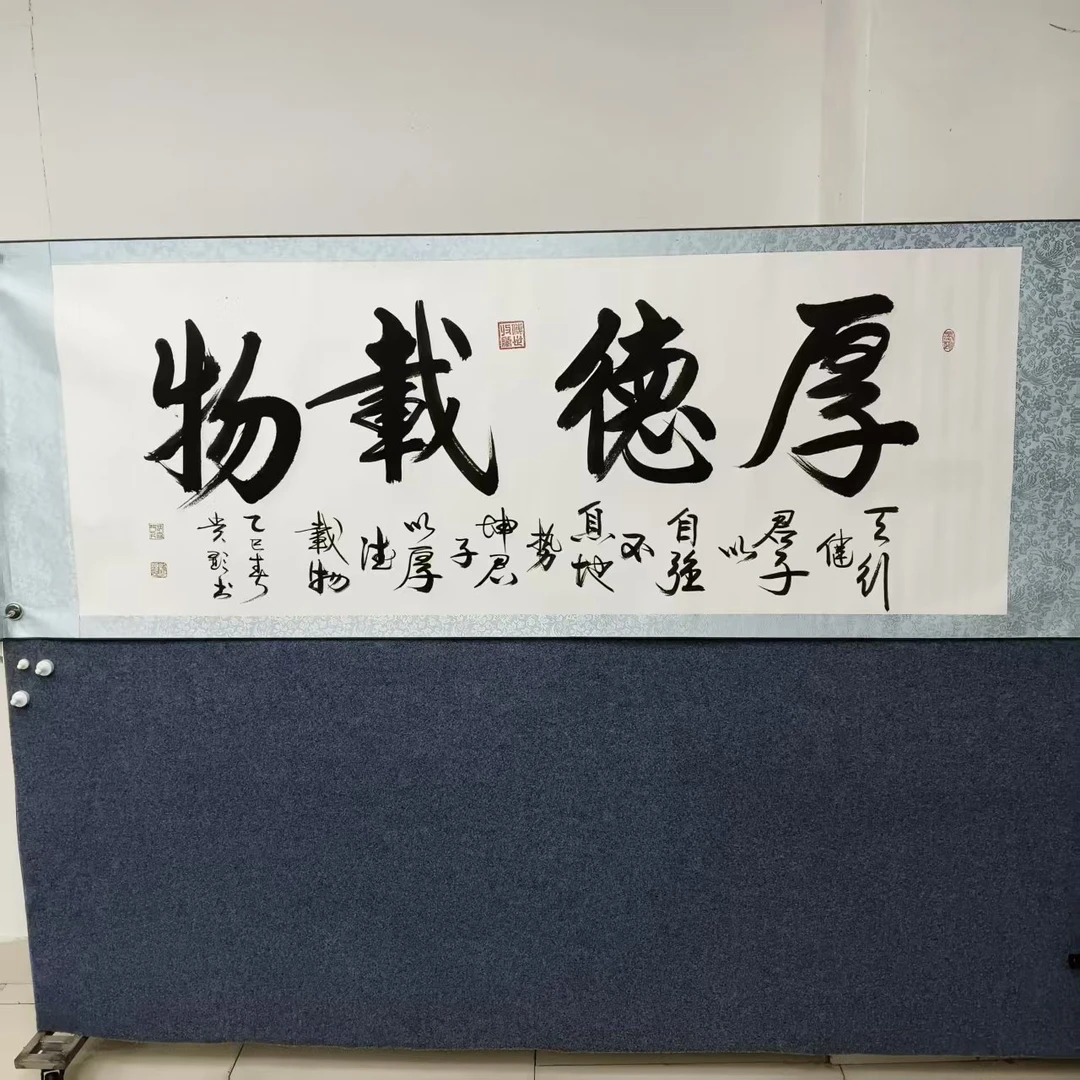 厚德載物
天行健君子以自強不息地势坤君子以厚德載物
乙巳春
贵彩书